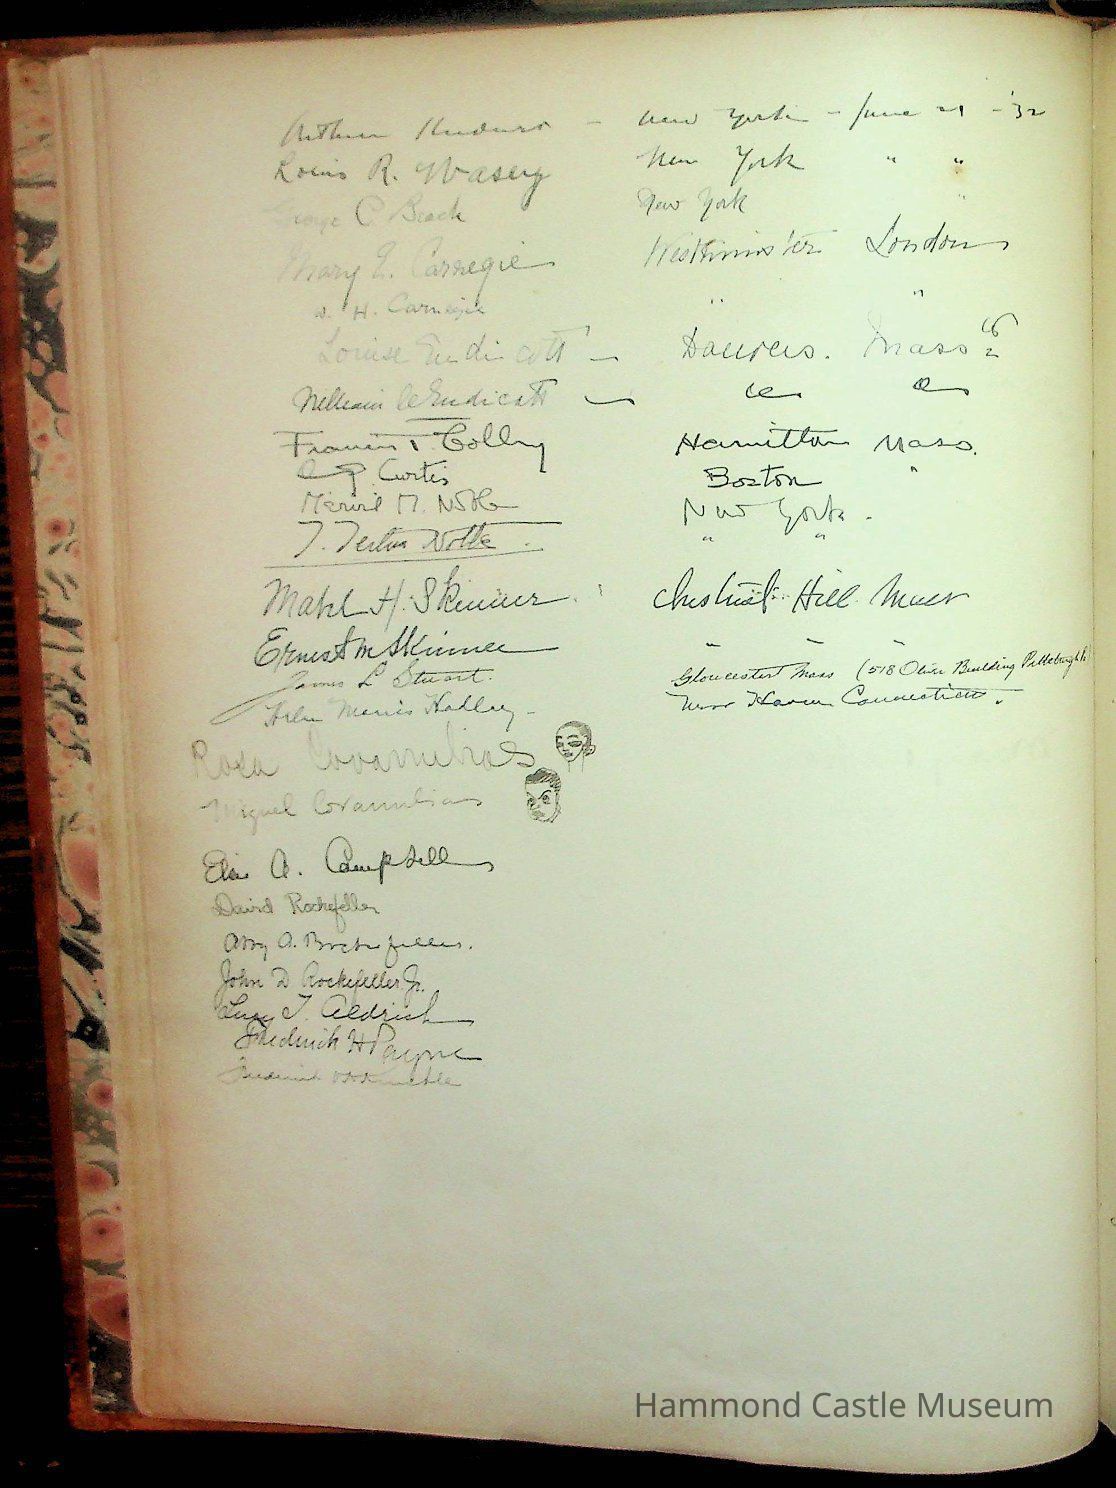 Arthur - New York - June 21 - '32
Louis R. New York " "
George C Beach New York "
Mary E. Carnegie Westminster London
D. H. Carnegie " "
Louise Endicott - Danvers. Mass
William C Endicott -
Francis T. Colby Hamilton Mass.
Curtis Boston "
M. Noble New York.
T. Noble. " "
Mabel H. Skinner Chestnut Hill Mass
Ernest M Skinner " " "
James L Stuart. Gloucester Mass (518 Oliver Building Pittsburgh Pa)
Helen Morris Hadley - New Haven Connecticut.
Rosa Covarrubias
Miguel Covarrubias
A. Campbell
David Rockefeller
Abby A. Rockefeller.
John D Rockefeller Jr.
Lucy T. Aldrich
Frederick H Payne
Hammond Castle Museum